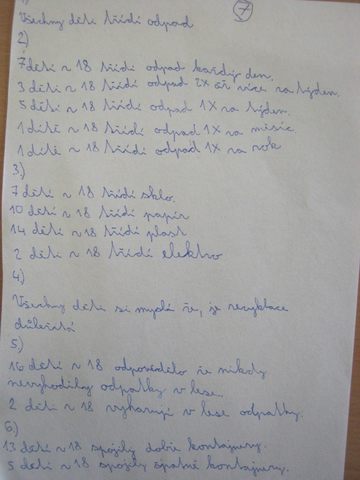 7
1)
Všechny děti třídí odpad
2)
7 dětí z 18 třídí odpad každý den.
3 děti z 18 třídí odpad 2x či více za týden.
5 dětí z 18 třídí odpad 1x za týden.
1 dítě z 18 třídí odpad 1x za měsíc.
1 dítě z 18 třídí odpad 1x za rok
3)
7 dětí z 18 třídí sklo.
10 dětí z 18 třídí papír
14 dětí z 18 třídí plast
2 děti z 18 třídí elektro
4)
Všechny děti si myslí že, je recyklace
důležitá
5)
16 dětí z 18 odpovědělo že nikdy
nevyhodily odpadky v lese.
2 děti z 18 vyhazují v lese odpadky.
6)
13 dětí z 18 spojily dobře kontajnery.
5 dětí z 18 spojily špatně kontajnery.